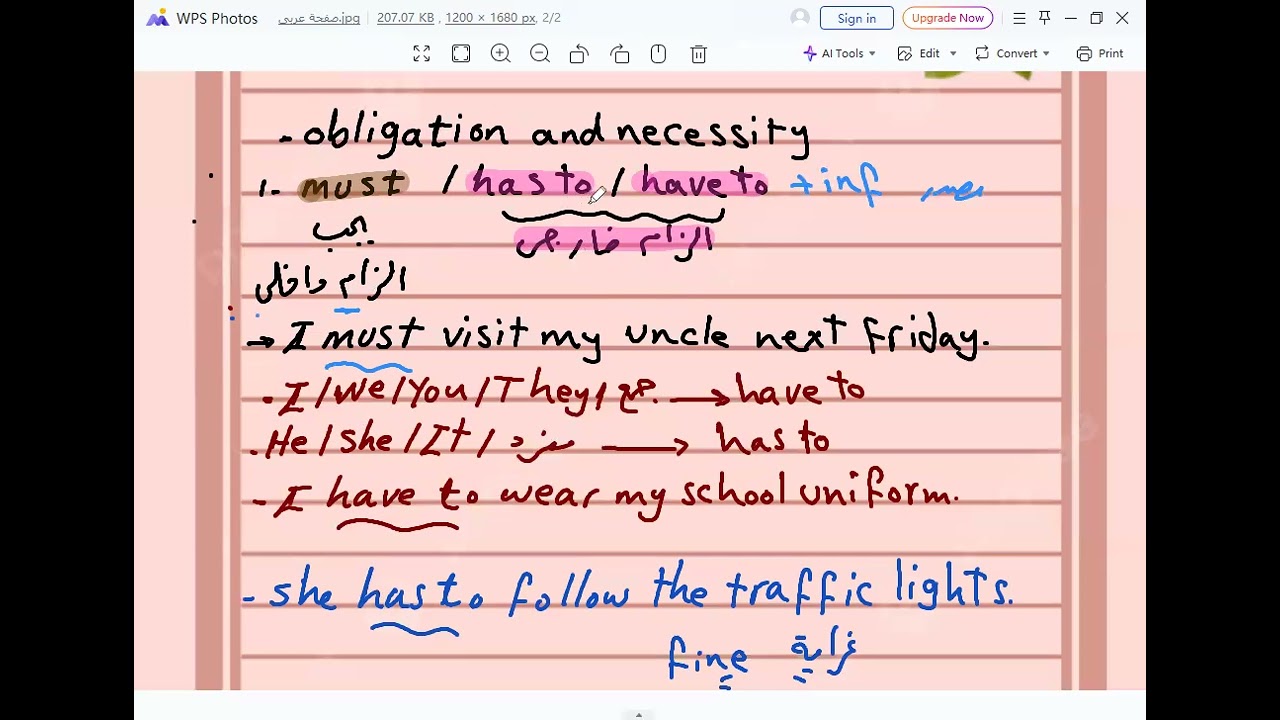 WPS Photos صفحة عربي.jpg 207.07 KB , 1200 × 1680 px, 2/2 Sign in Upgrade Now
AI Tools Edit Convert Print
- obligation and necessity
1- must / has to / have to + inf مصدر
يجب
الزام خارجى
الزام داخلى
→ I must visit my uncle next Friday.
- I / We / You / They / جمع → have to
- He / She / It / مفرد → has to
- I have to wear my school uniform.
- she has to follow the traffic lights.
fine غرامة